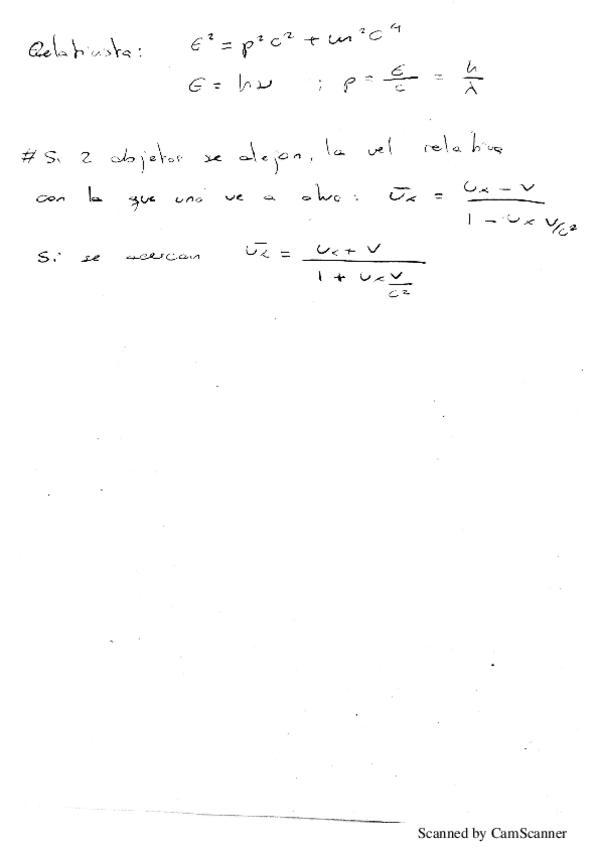 Relativista: E² = p²c² + m²c⁴
E = hν ; p = E/c = h/λ
# Si 2 objetos se alejan, la vel relativa
con la que uno ve a otro: Ūx = (Ux - V)/(1 - Ux V/c²)
Si se acercan Ūx = (Ux + V)/(1 + Ux V/c²)
Scanned by CamScanner